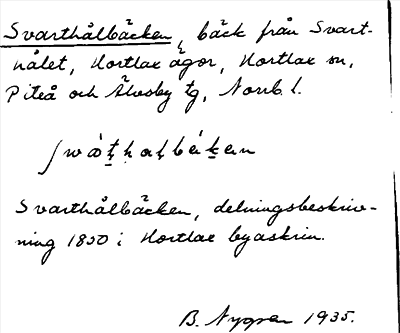 Svarthålbäcken, bäck från Svart-
hålet, Hortlax ägor, Hortlax sn,
Piteå och Älvsby tg, Norrb. l.
Svarthålbäcken, delningsbeskriv-
ning 1850 i Hortlax byaskrin.
B. Nygren 1935.